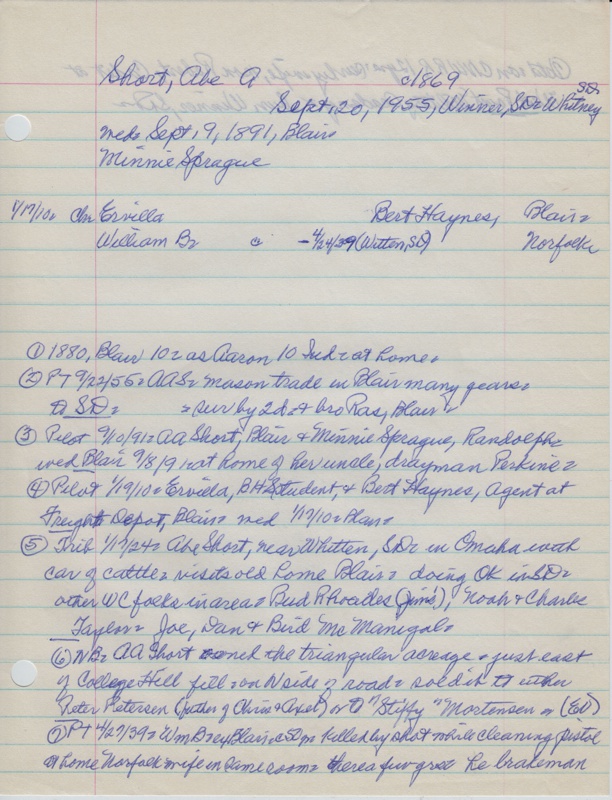 Short, Abe A c1869
Sept. 20, 1955, Winner, SD= Whitney SD=
med= Sept. 9, 1891, Blair=
Minnie Sprague
1/17/10= Ch= Ervilla Bert Haynes, Blair=
William B= - 4/24/39 (Witten, SD) Norfolk
① 1880, Blair 10= as Aaron 10 Ind= at home=
② PT 9/22/55= AAS= mason trade in Blair many years=
to SD= = sur by 2d= & bro Ras, Blair=
③ Pilot 9/10/91= AA Short, Blair & Minnie Sprague, Randolph=
wed Blair 9/8/91= at home of her uncle, drayman Perkins=
④ Pilot 1/19/10= Ervilla, BHStudent, & Bert Haynes, agent at
Freight Depot, Blair= wed 1/17/10=
⑤ Trib 1/17/24= Abe Short, near Whitten, SD= in Omaha with
car of cattle= visits old home Blair= doing OK in SD=
other WC folks in area= Bud Rhoades (Jim's), Noah & Charle
Taylor= Joe, Dan & Bird McManigal=
⑥ NB= AA Short owned the triangular acreage = just east
of College Hill = on N side of road = sold it to either
Peter Petersen (father of Chris & Axel) or to "Stiffy" Mortensen = (Ed)
⑦ PT 4/27/39= Wm B= ex Blair= killed by shot while cleaning pistol
at home Norfolk= wife in same room= he brakeman